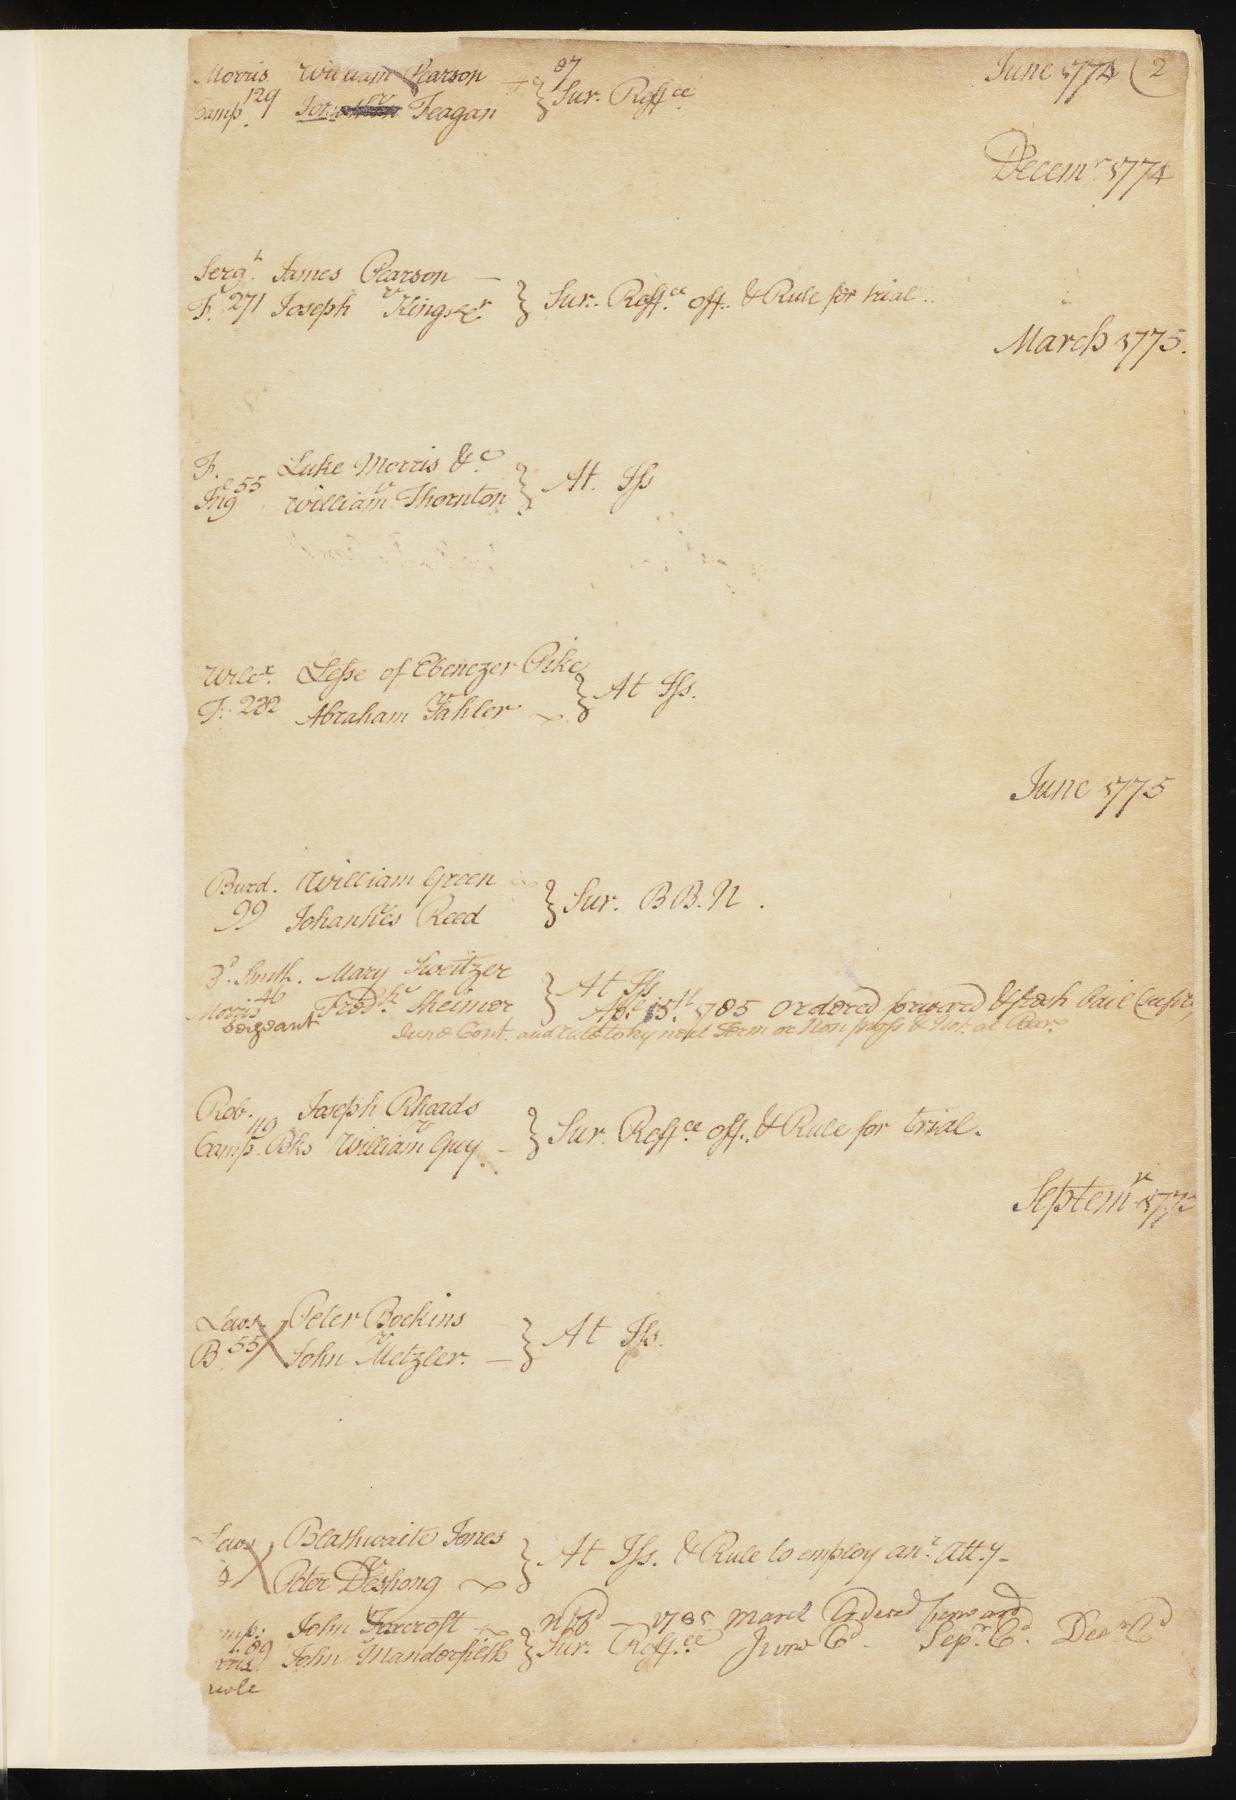 June 1774 (2
Morris William Pearson 87
Camp 129 v Feagan } Sur. Reff.ce
Decem.r 1774
Serg.t James Pearson
F. 271 Joseph v Kings } Sur. Reff.ce off. & Rule for trial.
March 1775.
F. Luke Morris &.c
Ing 55 William v Thornton } At. Iss
Wilc.x Lesse of Ebenezer Pike
F. 282 Abraham v Fahler } At Iss.
June 1775
Burd. William Green
99 Johannes v Reed } Sur. B B. N.
B.d Smith. Mary Sweitzer
Morris 46 Fred.k v Sheimer } At Iss
Sergeant 15.th 1785 Ordered forward & fresh bail
June Cont. and rule to try next Term or Non pross & Not. at Bar.
Rob. Joseph Rhoads
Camp. 119 William v Guy } Sur. Reff.ce off. & Rule for trial.
Septem.r 1775
Lews Peter Bockins
B. 55 John v Metzler. } At Iss.
Lews Blathwaite Jones
Peter v Deshong } At Iss. & Rule to employ an.r att.y
John Foxcroft 1785 March Ordered forward
89 John v Manderfield } Sur. Reff.ce June C.d Sep.r C.d Dec.r C.d